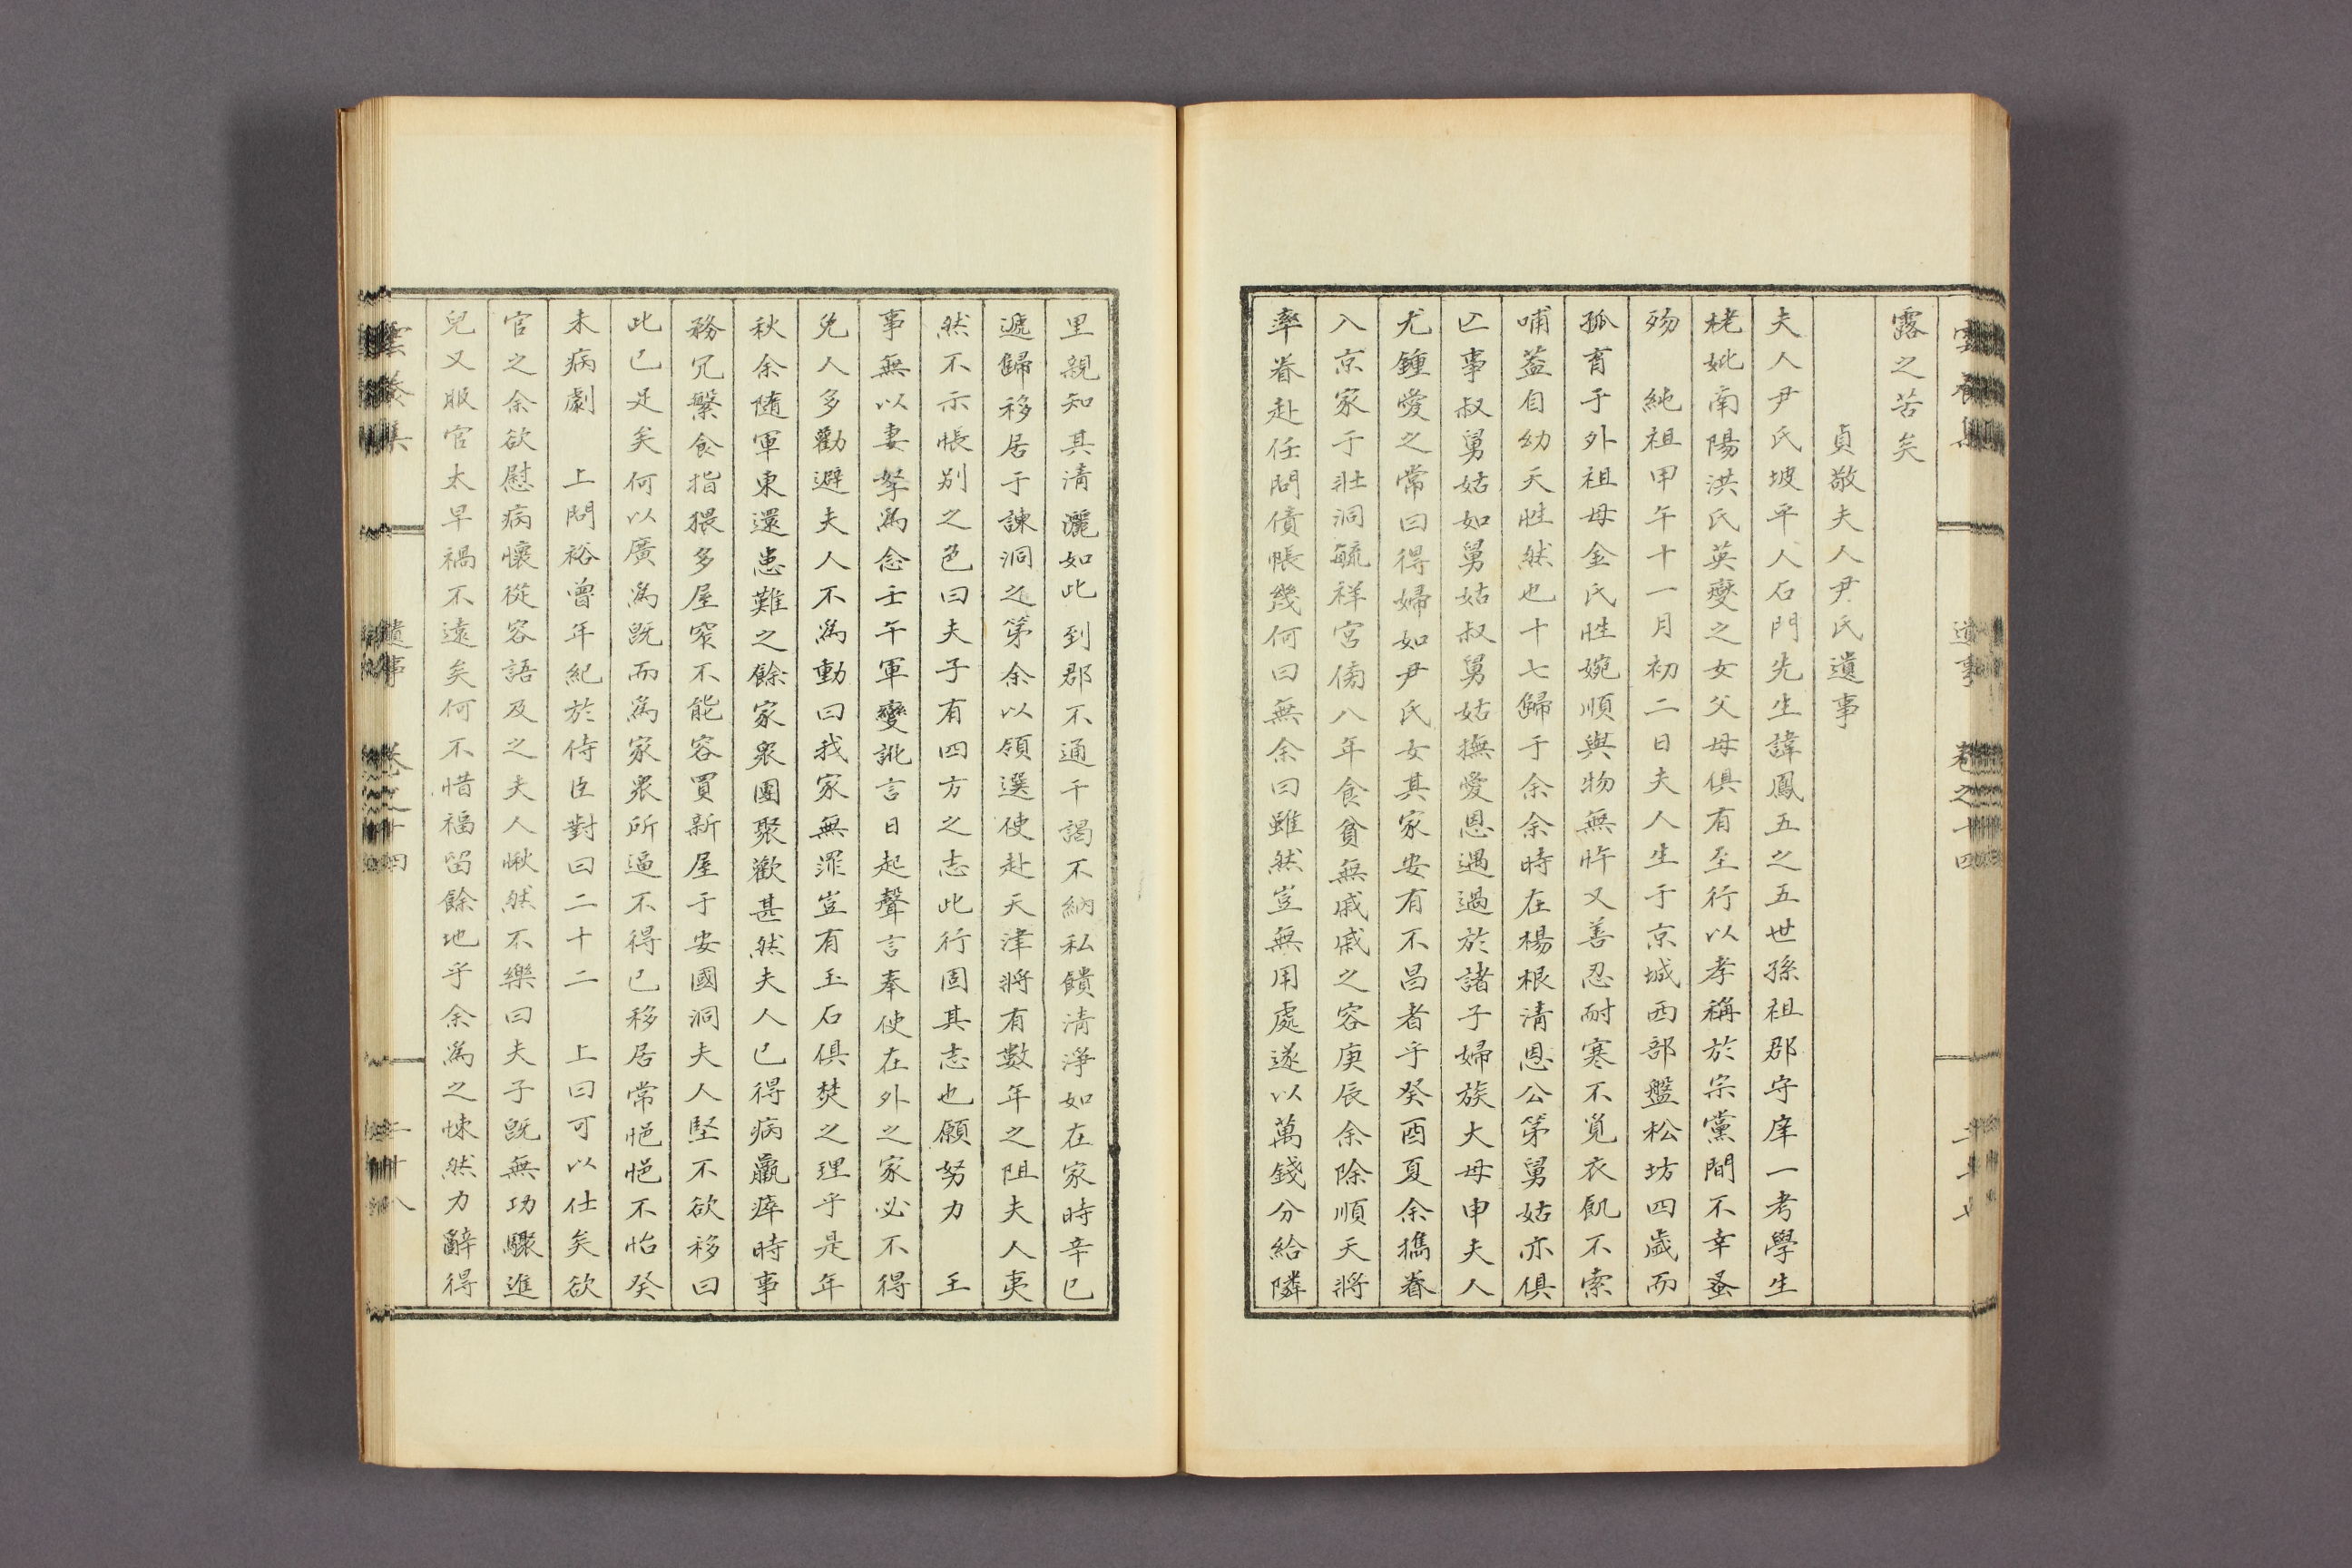 雲養集 遺事 卷之十四
露之苦矣
貞敬夫人尹氏遺事
夫人尹氏坡平人石門先生諱鳳五之五世孫祖郡守庠一考學生
栳妣南陽洪氏英燮之女父母俱有至行以孝稱於宗黨間不幸蚤
歾 純祖甲午十一月初二日夫人生于京城西部盤松坊四歲而
孤育于外祖母金氏性婉順與物無忤又善忍耐寒不覓衣飢不索
哺蓋自幼天性然也十七歸于余余時在楊根清恩公第舅姑亦俱
亾事叔舅姑如舅姑叔舅姑撫愛恩遇過於諸子婦族大母申夫人
尤鍾愛之常曰得婦如尹氏女其家安有不昌者乎癸酉夏余攜眷
入京家于壯洞毓祥宮傍八年食貧無戚戚之容庚辰余除順天將
率眷赴任問債帳幾何曰無余曰雖然豈無用處遂以萬錢分給隣
里親知其清灑如此到郡不通干謁不納私饋清淨如在家時辛巳
遞歸移居于諫洞之第余以領選使赴天津將有數年之阻夫人夷
然不示悵別之色曰夫子有四方之志此行固其志也願努力 王
事無以妻孥爲念壬午軍變訛言日起聲言奉使在外之家必不得
免人多勸避夫人不爲動曰我家無罪豈有玉石俱焚之理乎是年
秋余隨軍東還患難之餘家衆團聚歡甚然夫人已得病羸瘁時事
務冗繁食指猥多屋窄不能容買新屋于安國洞夫人堅不欲移曰
此已足矣何以廣爲旣而爲家衆所逼不得已移居常悒悒不怡癸
未病劇 上問裕曾年紀於侍臣對曰二十二 上曰可以仕矣欲
官之余欲慰病懷從容語及之夫人愀然不樂曰夫子旣無功驟進
兒又服官太早禍不遠矣何不惜福留餘地乎余爲之悚然力辭得
雲養集 遺事 卷之十四 二十八